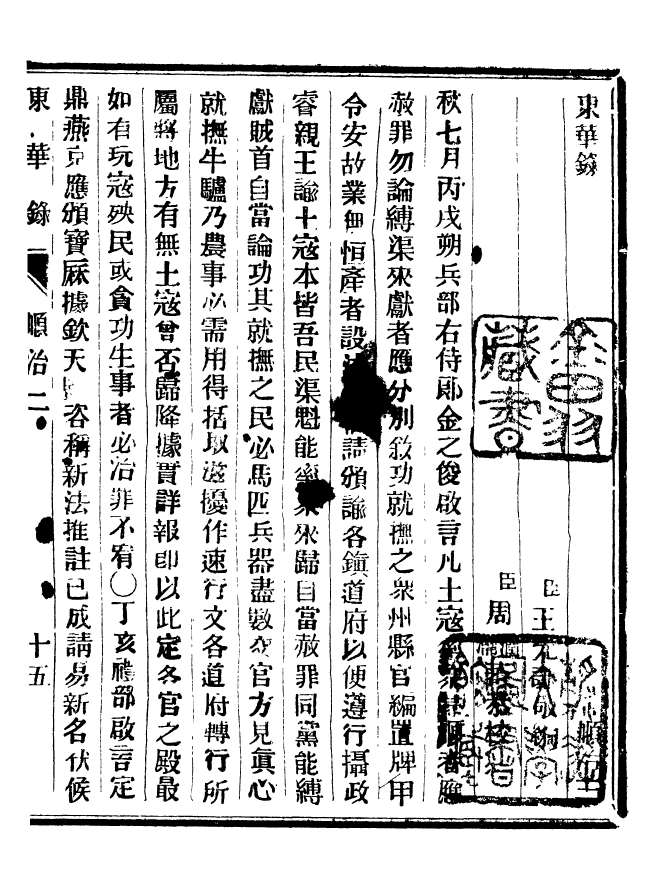 東華錄
臣王先謙敬編
臣周
秋七月丙戌朔兵部右侍郎金之俊啟言凡土寇率眾歸順者應
赦罪勿論縛渠來獻者應分別敘功就撫之眾州縣官編置牌甲
令安故業無恒產者設法請頒諭各鎮道府以便遵行攝政
睿親王諭土寇本皆吾民渠魁能率眾來歸自當赦罪同黨能縛
獻賊首自當論功其就撫之民必馬匹兵器盡數交官方見眞心
就撫牛驢乃農事必需用得括取滋擾作速行文各道府轉行所
屬將地方有無土寇曾否歸降據實詳報卽以此定各官之殿最
如有玩寇殃民或貪功生事者必治罪不宥○丁亥禮部啟言定
鼎燕京應頒寶厤據欽天監咨稱新法推註已成請易新名伏候
東華錄 順治二 十五